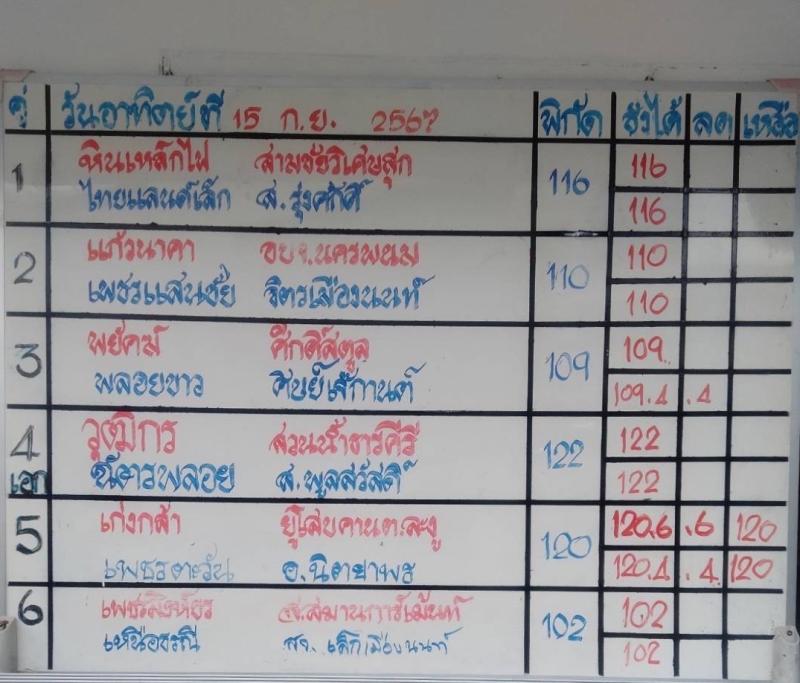 คู่ วันอาทิตย์ที่ 15 ก.ย. 2567 พิกัด ชั่งได้ ลด เหลือ
1 หินเหล็กไฟ สามชัยวิเศษสุก 116 116
ไทยแลนด์เล็ก ส.รุ่งศักดิ์ 116
2 แก้วนาคา อบจ.นครพนม 110 110
เพชรแสนชัย จิตรเมืองนนท์ 110
3 พยัคฆ์ ศักดิ์สตูล 109 109
พลอยขาว 109.4 .4
4 วุฒิกร สวนน้ำธารคีรี 122 122
เอก ฉัตรพลอย ส.พูลสวัสดิ์ 122
5 เก่งกล้า ยุโสบคานต.ละงู 120 120.6 .6 120
เพชรตะวัน อ.นิตยาพร 120.4 .4 120
6 เพชรสิงห์ขร ส.สมานการ์เม้นท์ 102 102
เหนือธรณี สจ.เล็กเมืองนนท์ 102